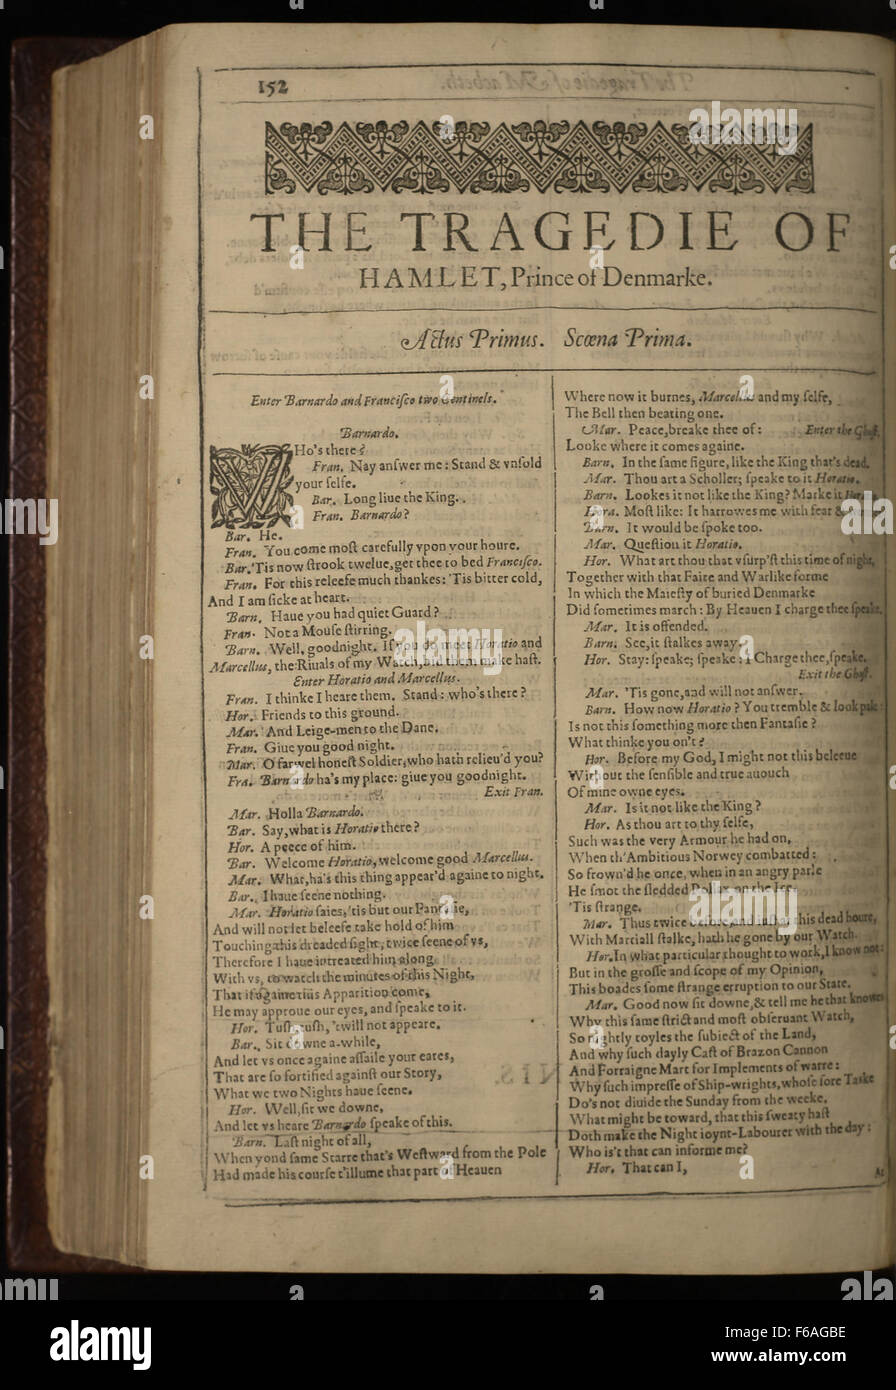 152
THE TRAGEDIE OF
HAMLET, Prince of Denmarke.
Actus Primus. Scœna Prima.
Enter Barnardo and Franciſco two Centinels.
Barnardo.
WHo's there?
Fran. Nay anſwer me: Stand & vnfold
your ſelfe.
Bar. Long liue the King.
Fran. Barnardo?
Bar. He.
Fran. You come moſt carefully vpon your houre.
Bar. 'Tis now ſtrook twelue, get thee to bed Franciſco.
Fran. For this releefe much thankes: 'Tis bitter cold,
And I am ſicke at heart.
Barn. Haue you had quiet Guard?
Fran. Not a Mouſe ſtirring.
Barn. Well, goodnight. If you do meet Horatio and
Marcellus, the Riuals of my Watch, bid them make haſt.
Enter Horatio and Marcellus.
Fran. I thinke I heare them. Stand: who's there?
Hor. Friends to this ground.
Mar. And Leige-men to the Dane.
Fran. Giue you good night.
Mar. O farwel honeſt Soldier, who hath relieu'd you?
Fra. Barnardo ha's my place: giue you goodnight.
Exit Fran.
Mar. Holla Barnardo.
Bar. Say, what is Horatio there?
Hor. A peece of him.
Bar. Welcome Horatio, welcome good Marcellus.
Mar. What, ha's this thing appear'd againe to night.
Bar. I haue ſeene nothing.
Mar. Horatio ſaies, 'tis but our Fantaſie,
And will not let beleefe take hold of him
Touching this dreaded ſight, twice ſeene of vs,
Therefore I haue intreated him along
With vs, to watch the minutes of this Night,
That if againe this Apparition come,
He may approue our eyes, and ſpeake to it.
Hor. Tuſh, tuſh, 'twill not appeare.
Bar. Sit downe a-while,
And let vs once againe aſſaile your eares,
That are ſo fortified againſt our Story,
What we two Nights haue ſeene.
Hor. Well, ſit we downe,
And let vs heare Barnardo ſpeake of this.
Barn. Laſt night of all,
When yond ſame Starre that's Weſtward from the Pole
Had made his courſe t'illume that part of Heauen
Where now it burnes, Marcellus and my ſelfe,
The Bell then beating one.
Mar. Peace, breake thee of: Enter the Ghoſt.
Looke where it comes againe.
Barn. In the ſame figure, like the King that's dead.
Mar. Thou art a Scholler; ſpeake to it Horatio.
Barn. Lookes it not like the King? Marke it Hor.
Hora. Moſt like: It harrowes me with fear &
Barn. It would be ſpoke too.
Mar. Queſtion it Horatio.
Hor. What art thou that vſurp'ſt this time of night,
Together with that Faire and Warlike forme
In which the Maieſty of buried Denmarke
Did ſometimes march: By Heauen I charge thee ſpeake.
Mar. It is offended.
Barn. See, it ſtalkes away.
Hor. Stay: ſpeake; ſpeake: I Charge thee, ſpeake.
Exit the Ghoſt.
Mar. 'Tis gone, and will not anſwer.
Barn. How now Horatio? You tremble & look pale:
Is not this ſomething more then Fantaſie?
What thinke you on't?
Hor. Before my God, I might not this beleeue
Without the ſenſible and true auouch
Of mine owne eyes.
Mar. Is it not like the King?
Hor. As thou art to thy ſelfe,
Such was the very Armour he had on,
When th' Ambitious Norwey combatted:
So frown'd he once, when in an angry parle
He ſmot the ſledded Pollax on the Ice.
'Tis ſtrange.
Mar. Thus twice before, and iuſt at this dead houre,
With Martiall ſtalke, hath he gone by our Watch.
Hor. In what particular thought to work, I know not:
But in the groſſe and ſcope of my Opinion,
This boades ſome ſtrange erruption to our State.
Mar. Good now ſit downe, & tell me he that knowes
Why this ſame ſtrict and moſt obſeruant Watch,
So nightly toyles the ſubiect of the Land,
And why ſuch dayly Caſt of Brazon Cannon
And Forraigne Mart for Implements of warre:
Why ſuch impreſſe of Ship-wrights, whoſe ſore Taske
Do's not diuide the Sunday from the weeke,
What might be toward, that this ſweaty haſt
Doth make the Night ioynt-Labourer with the day:
Who is't that can informe me?
Hor. That can I,
At
alamy
Image ID: F6AGBE
www.alamy.com